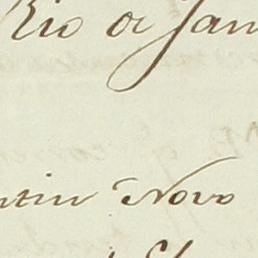 Rio de Jan
ntin Novo